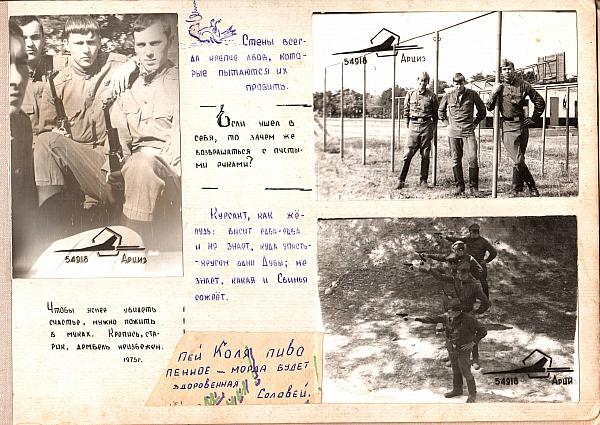 54918 Арциз
Чтобы яснее увидеть
счастье, нужно пожить
в муках. Крепись, ста-
рик, дембель неизбежен.
1975г.
Стены всег-
да крепче лбов, кото-
рые пытаются их
пробить.
Если ушел в
себя, то зачем же
возвращаться с пусты-
ми руками?
Курсант, как жё-
лудь: висит едва-едва
и не знает, куда упасть-
кругом одни Дубы; не
знает, какая и Свинья
сожрёт.
Пей Коля пиво
пенное — морда будет
здоровенная
Соловей.
54918 Арциз
54918 Арциз